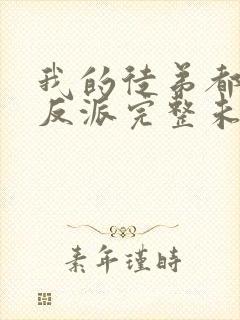 我的徒弟都
反派完整未
素年瑾時